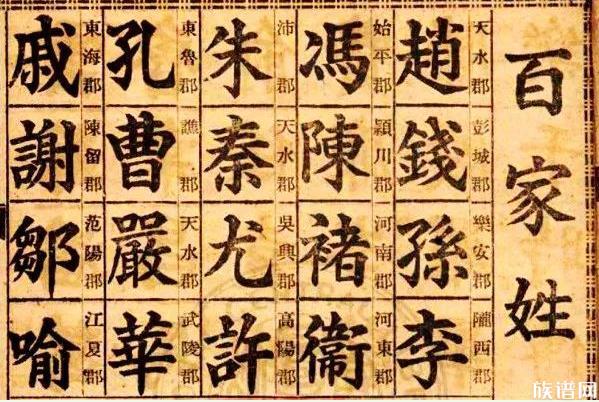 百家姓
天水郡 彭城郡 樂安郡 隴西郡
趙錢孫李
始平郡 穎川郡 河南郡 河東郡
馮陳褚衛
沛郡 天水郡 吳興郡 高陽郡
朱秦尤許
東魯郡 譙郡 天水郡 武陵郡
孔曹嚴華
東海郡 陳留郡 范陽郡 江夏郡
戚謝鄒喻
族谱网